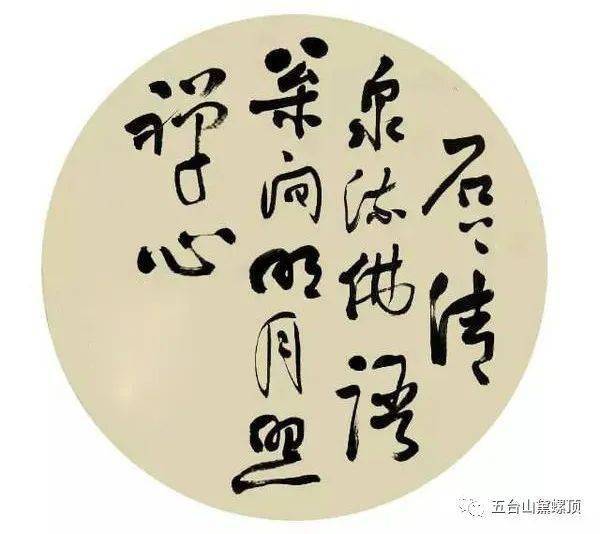 石上清
泉流佛語
间明月照
禅心
五台山黛螺顶